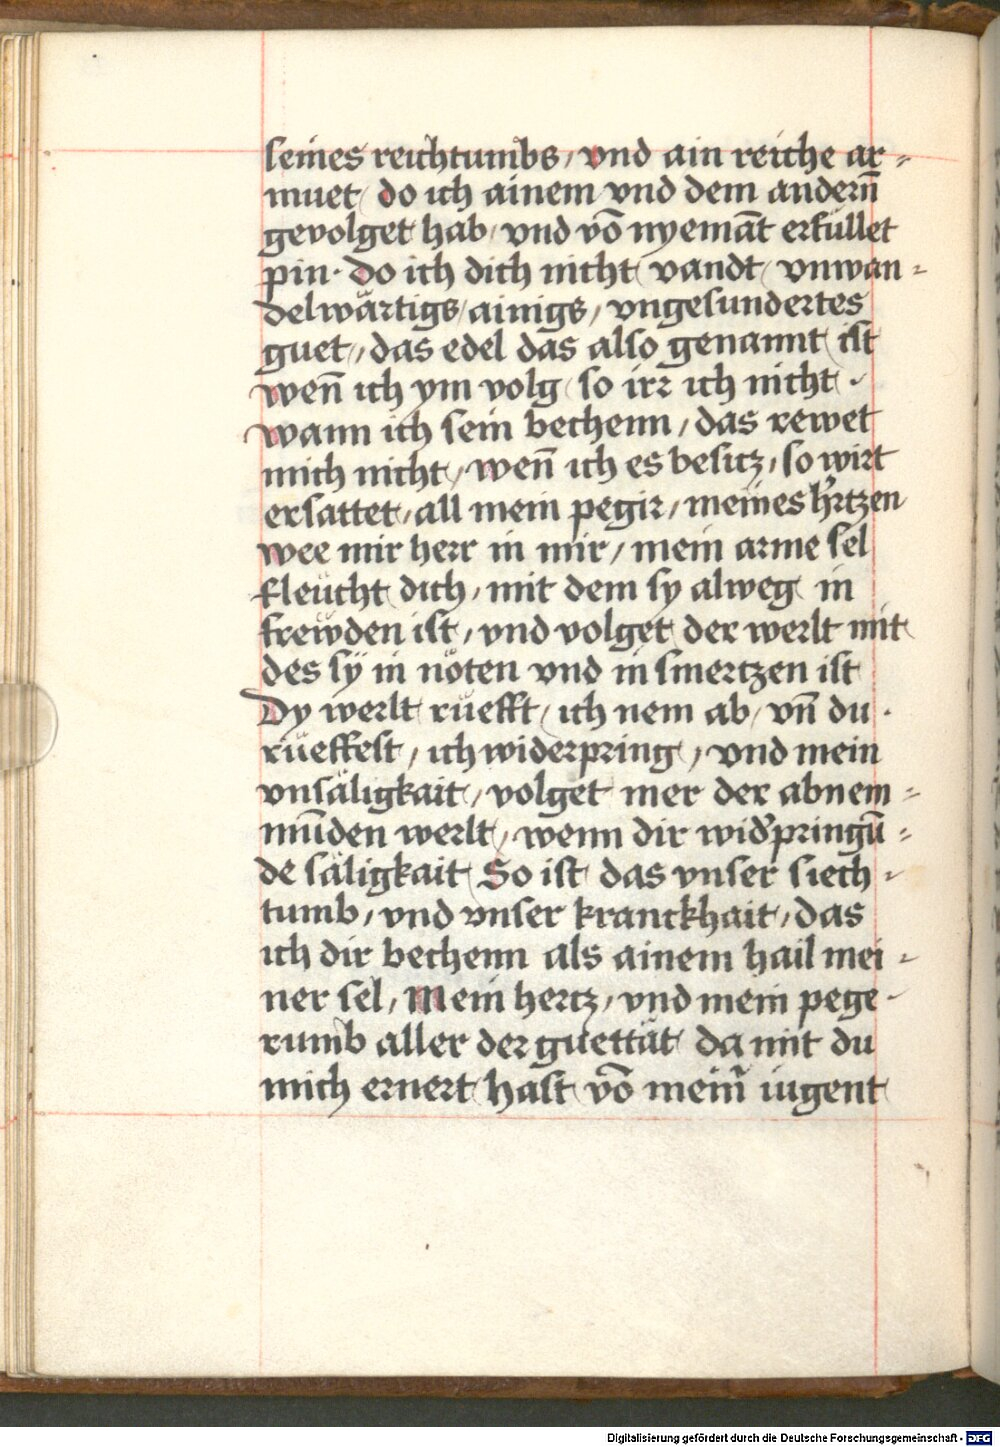 seines reichtumbs / vnd ain reiche ar=
muet / do ich ainem vnd dem andern̄
gevolget hab / vnd vō nyemāt erfüllet
pin · do ich dich nicht vandt / vnwan=
delwärtigs / ainigs / vngesundertes
guet / das edel das also genannt ist
wen̄ ich ym volg so irr ich nicht ·
wann ich sein bechenn / das rewet
mich nicht / wen̄ ich es besitz / so wirt
ersattet / all mein pegir / meines h'rtzen
wee mir herr in mir / mein arme sel
fleücht dich / mit dem sy alweg in
frewden ist / vnd volget der werlt mit
des sÿ in nöten vnd in smertzen ist
Dy werlt rüefft / ich nem ab / vn̄ du ·
rüeffest / ich widerpring / vnd mein
vnsäligkait / volget mer der abnem=
mūden werlt / wenn dir wid'pringū=
de säligkait So ist das vnser siech=
tumb / vnd vnser kranckhait / das
ich dir bechenn als ainem hail mei=
ner sel / Mein hertz / vnd mein pege-
rumb aller der guettät da mit du
mich ernert hast vō mein̄ iugent
Digitalisierung gefördert durch die Deutsche Forschungsgemeinschaft - DFG